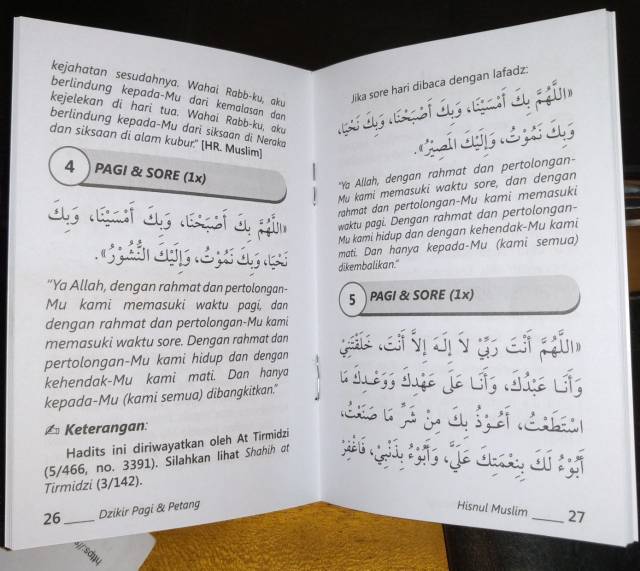 kejahatan sesudahnya. Wahai Rabb-ku, aku
berlindung kepada-Mu dari kemalasan dan
kejelekan di hari tua. Wahai Rabb-ku, aku
berlindung kepada-Mu dari siksaan di Neraka
dan siksaan di alam kubur." [HR. Muslim]
4 PAGI & SORE (1x)
«اَللَّهُمَّ بِكَ أَصْبَحْنَا، وَبِكَ أَمْسَيْنَا، وَبِكَ
نَحْيَا، وَبِكَ نَمُوْتُ، وَإِلَيْكَ النُّشُوْرُ».
"Ya Allah, dengan rahmat dan pertolongan-
Mu kami memasuki waktu pagi, dan
dengan rahmat dan pertolongan-Mu kami
memasuki waktu sore. Dengan rahmat dan
pertolongan-Mu kami hidup dan dengan
kehendak-Mu kami mati. Dan hanya
kepada-Mu (kami semua) dibangkitkan."
Keterangan:
Hadits ini diriwayatkan oleh At Tirmidzi
(5/466, no. 3391). Silahkan lihat Shahih at
Tirmidzi (3/142).
26 Dzikir Pagi & Petang
Jika sore hari dibaca dengan lafadz:
«اَللَّهُمَّ بِكَ أَمْسَيْنَا، وَبِكَ أَصْبَحْنَا، وَبِكَ نَحْيَا،
وَبِكَ نَمُوْتُ، وَإِلَيْكَ الْمَصِيْرُ».
"Ya Allah, dengan rahmat dan pertolongan-
Mu kami memasuki waktu sore, dan dengan
rahmat dan pertolongan-Mu kami memasuki
waktu pagi. Dengan rahmat dan pertolongan-
Mu kami hidup dan dengan kehendak-Mu kami
mati. Dan hanya kepada-Mu (kami semua)
dikembalikan."
5 PAGI & SORE (1x)
«اَللَّهُمَّ أَنْتَ رَبِّيْ لَا إِلٰهَ إِلَّا أَنْتَ، خَلَقْتَنِيْ
وَأَنَا عَبْدُكَ، وَأَنَا عَلَى عَهْدِكَ وَوَعْدِكَ مَا
اسْتَطَعْتُ، أَعُوْذُ بِكَ مِنْ شَرِّ مَا صَنَعْتُ،
أَبُوْءُ لَكَ بِنِعْمَتِكَ عَلَيَّ، وَأَبُوْءُ بِذَنْبِيْ، فَاغْفِرْ
Hisnul Muslim 27
https:/